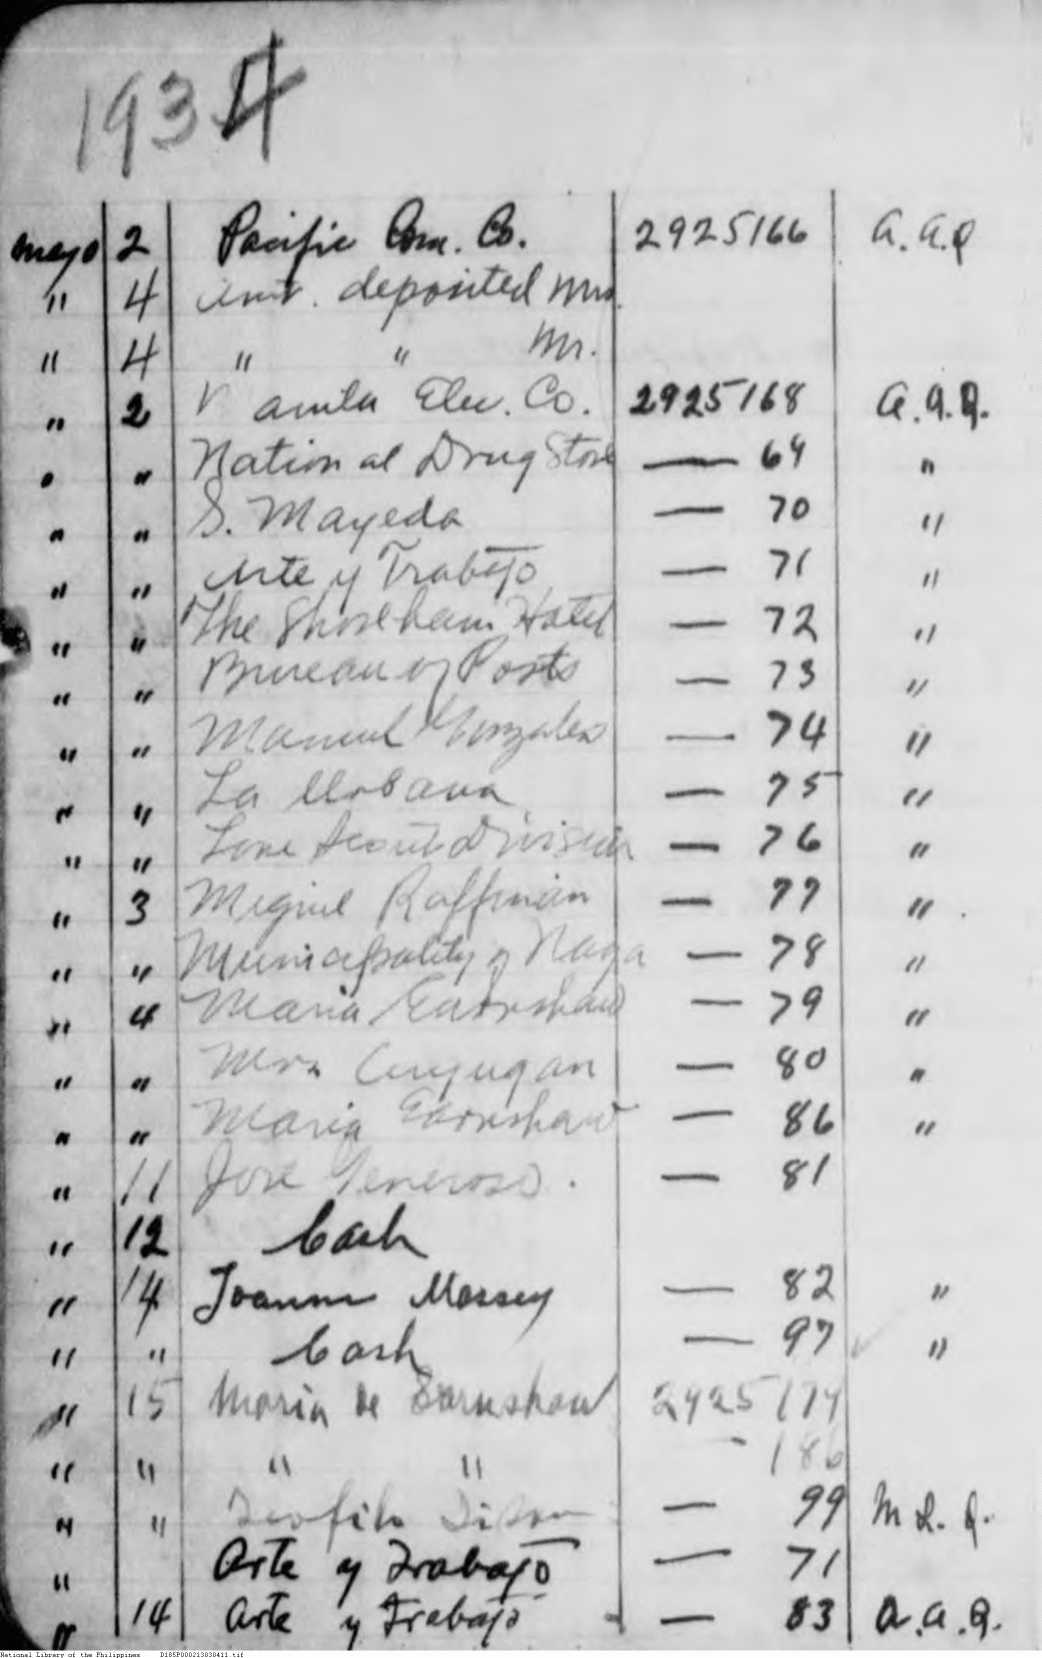 1934
Mayo 2 Pacific Com. Co. 2925166 A.A.Q
" 4 Amt. deposited Mrs.
" 4 " " Mr.
" 2 Elec. Co. 2925168 A.A.Q.
" " National Drug Store — 69 "
" " S. Mayeda — 70 "
" " Arte y Trabajo — 71 "
" " The Shoreham Hotel — 72 "
" " Bureau of Posts — 73 "
" " Manuel Gonzales — 74 "
" " La Urbana — 75 "
" " Lone Scout Division — 76 "
" 3 Miguel Raffinan — 77 "
" " Municipality of Naga — 78 "
" 4 Maria Earnshaw — 79 "
" " Mrs. — 80 "
" " Maria Earnshaw — 86 "
" 11 Jose Generoso. — 81
" 12 Cash
" 14 Joanna Massey — 82 "
" " Cash — 97 "
" 15 Maria de Earnshaw 2925179
" " " " — 186
" " Teofilo — 99 M.L.Q.
" Arte y Trabajo — 71
" 14 Arte y Trabajo — 83 A.A.Q.
National Library of the Philippines D185P000213838411.tif